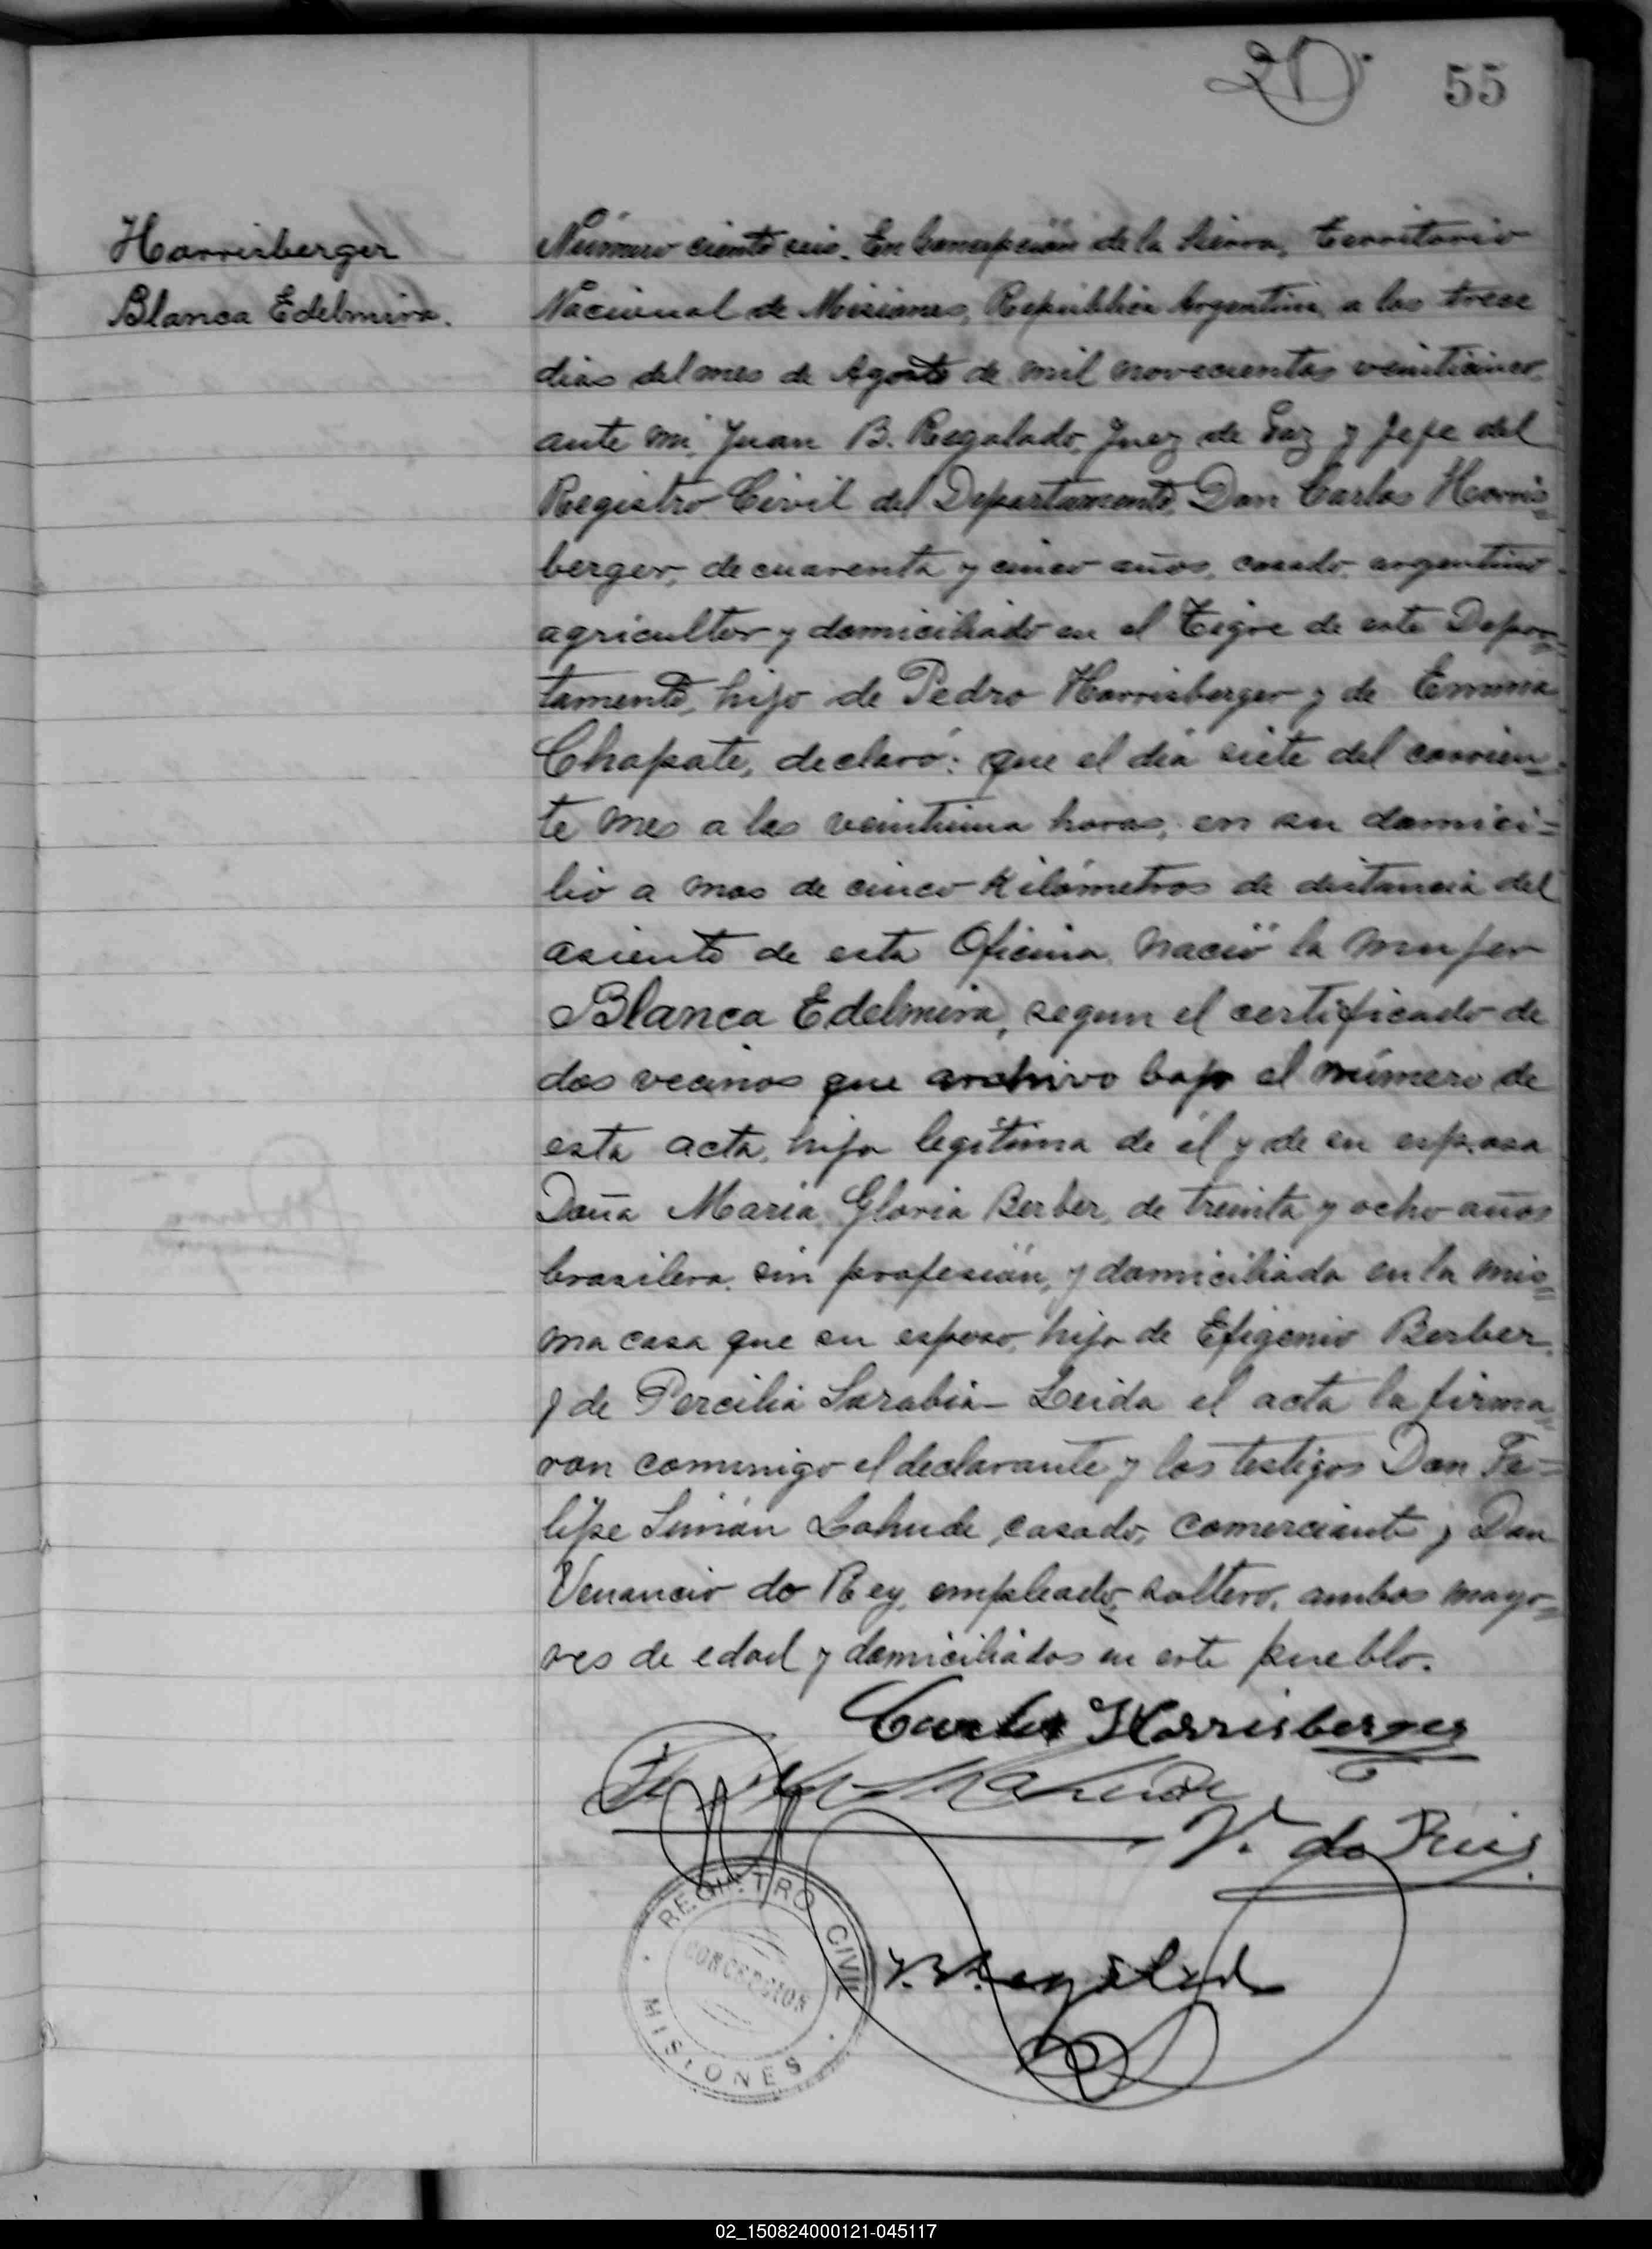 55
Harrisberger
Blanca Edelmira.
Número ciento seis. En Concepción de la Sierra, Territorio
Nacional de Misiones, República Argentina, a los trece
dias del mes de Agosto de mil novecientos veinticinco,
ante mi, Juan B. Regalado, Juez de Paz y Jefe del
Registro Civil del Departamento, Don Carlos Harris=
berger, de cuarenta y cinco años, casado, argentino
agricultor y domiciliado en el Tigre de este Depar=
tamento, hijo de Pedro Harrisberger y de Emma
Chapate, declaró: que el dia siete del corrien=
te mes a las veintiuna horas, en su domici=
lio a mas de cinco kilómetros de distancia del
asiento de esta Oficina, nació la mujer
Blanca Edelmira, segun el certificado de
dos vecinos que archivo bajo el número de
esta acta, hija legítima de él y de su esposa
Doña Maria Gloria Berber, de treinta y ocho años
brasilera, sin profesión, y domiciliada en la mis=
ma casa que su esposo, hija de Efigenio Berber
y de Percilia Sarabia - Leida el acta la firma=
ron conmigo el declarante y los testigos Don Fe=
lipe Simón Lahude, casado, comerciante y Don
Venancio do Rey, empleado, soltero, ambos mayo=
res de edad y domiciliados en este pueblo.
Carlos Harrisberger
V. do Reis
REGISTRO CIVIL
CONCEPCION
MISIONES
02_150824000121-045117